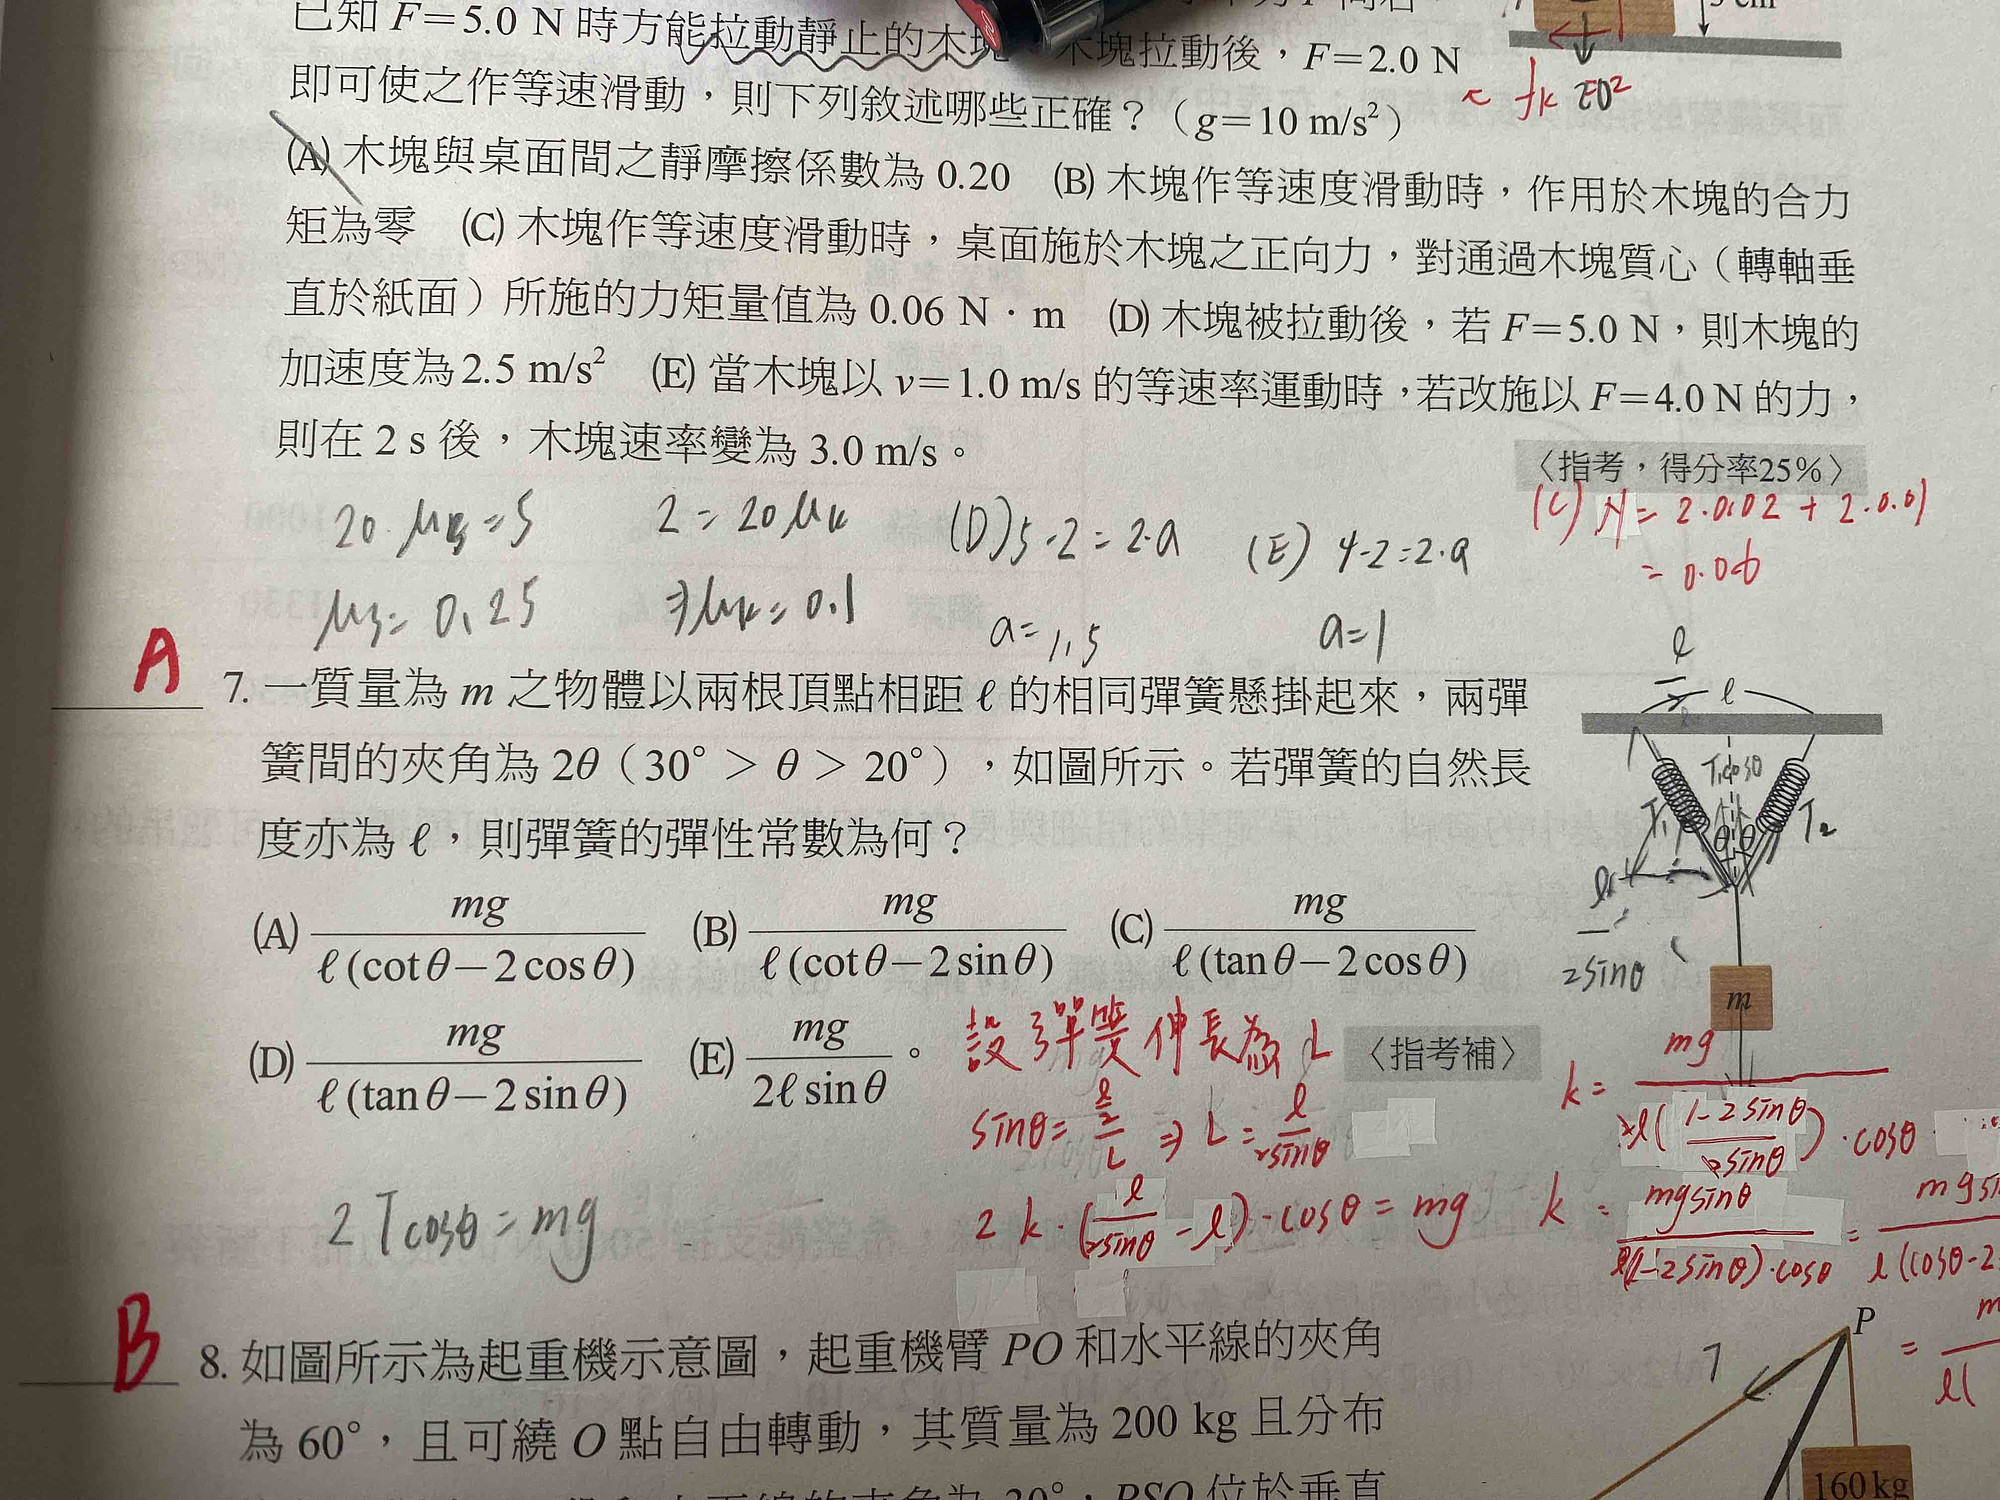 已知 F=5.0 N 時方能拉動靜止的木塊 木塊拉動後，F=2.0 N
即可使之作等速滑動，則下列敘述哪些正確？（g=10 m/s²）
(A) 木塊與桌面間之靜摩擦係數為 0.20 (B) 木塊作等速度滑動時，作用於木塊的合力
矩為零 (C) 木塊作等速度滑動時，桌面施於木塊之正向力，對通過木塊質心（轉軸垂
直於紙面）所施的力矩量值為 0.06 N·m (D) 木塊被拉動後，若 F=5.0 N，則木塊的
加速度為 2.5 m/s² (E) 當木塊以 v=1.0 m/s 的等速率運動時，若改施以 F=4.0 N 的力，
則在 2 s 後，木塊速率變為 3.0 m/s。
〈指考，得分率25%〉
fk
20·μs=5
2=20μk
(D) 5-2=2·a
(E) 4-2=2·a
(C) N=2·0.02+2·0.01
=0.06
μs=0.25
⇒μk=0.1
a=1.5
a=1
A
7. 一質量為 m 之物體以兩根頂點相距 ℓ 的相同彈簧懸掛起來，兩彈
簧間的夾角為 2θ（30° > θ > 20°），如圖所示。若彈簧的自然長
度亦為 ℓ，則彈簧的彈性常數為何？
(A) mg/ℓ(cotθ−2cosθ) (B) mg/ℓ(cotθ−2sinθ) (C) mg/ℓ(tanθ−2cosθ)
(D) mg/ℓ(tanθ−2sinθ) (E) mg/2ℓsinθ。
〈指考補〉
ℓ
T₁cosθ
T₁
T₂
θ θ
2sinθ
m
設彈簧伸長為 L
sinθ=(ℓ/2)/L ⇒ L=ℓ/2sinθ
2k·(ℓ/2sinθ-ℓ)·cosθ=mg
k=mg/2ℓ((1-2sinθ)/2sinθ)·cosθ
k=mgsinθ/ℓ(1-2sinθ)·cosθ
=
ℓ(cosθ-2
2Tcosθ=mg
B
8. 如圖所示為起重機示意圖，起重機臂 PO 和水平線的夾角
為 60°，且可繞 O 點自由轉動，其質量為 200 kg 且分布
P
T
160 kg